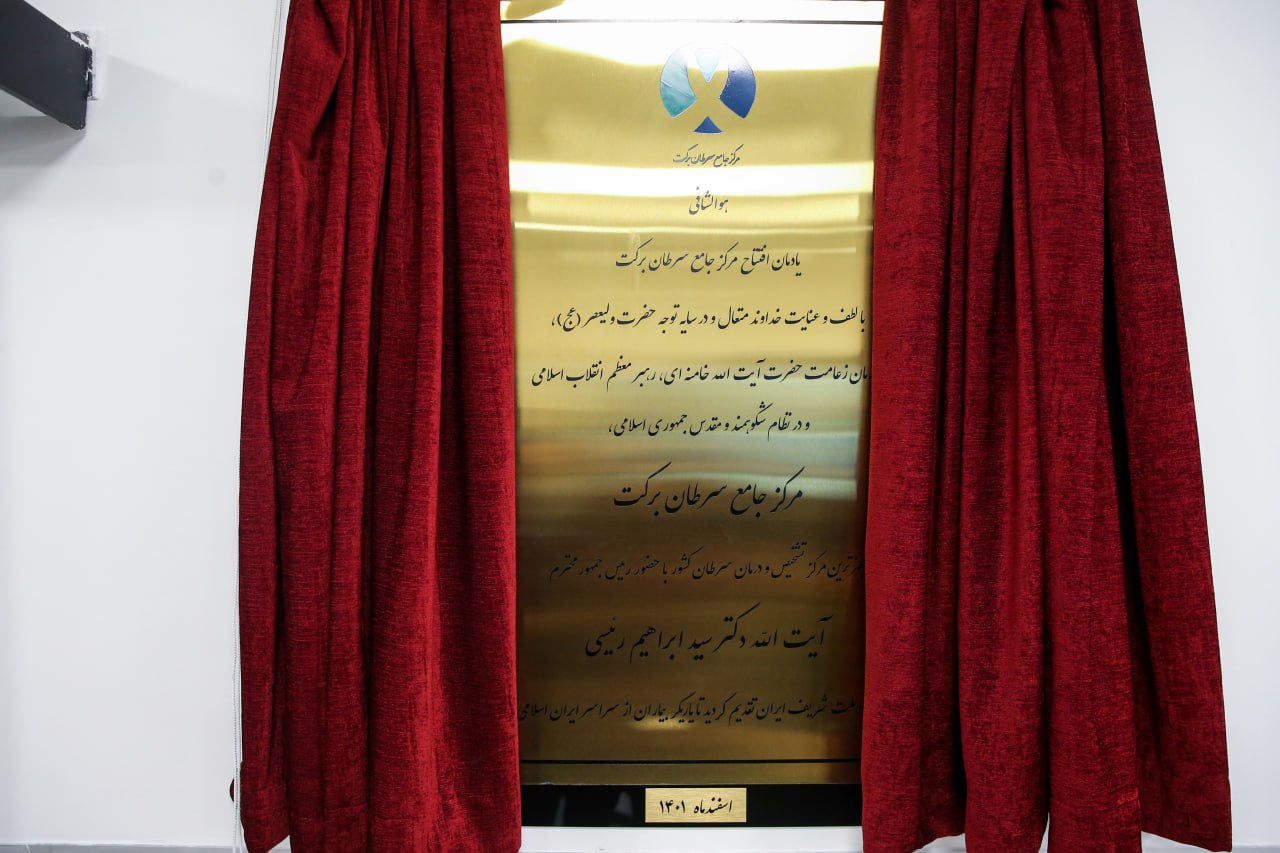 مرکز جامع سرطان برکت
هوالشافی
یادمان افتتاح مرکز جامع سرطان برکت
با لطف و عنایت خداوند متعال و در سایه توجه حضرت ولیعصر (عج)،
زعامت حضرت آیت الله خامنه ای، رهبر معظم انقلاب اسلامی
و در نظام شکوهمند و مقدس جمهوری اسلامی،
مرکز جامع سرطان برکت
مرکز تشخیص و درمان سرطان کشور با حضور رئیس جمهور محترم
آیت الله دکتر سید ابراهیم رئیسی
شریف ایران تقدیم گردید تا یاریگر بیماران از سراسر ایران اسلامی
اسفندماه ۱۴۰۱